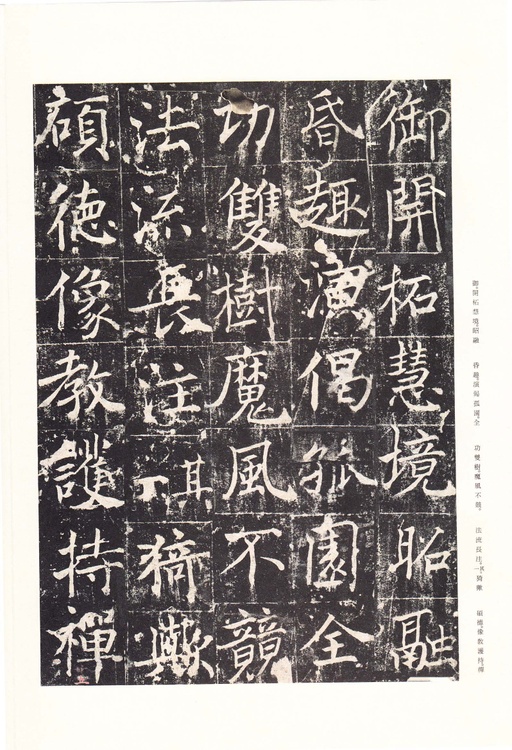 御開拓慧境昭融
昏趣演偈孤園全
功雙樹魔風不競
法流長注其一猗歟
碩德像教護持禪
御開拓慧境昭融 昏趣演偈孤園全 功雙樹魔風不競 法流長注其一猗歟 碩德像教護持禪